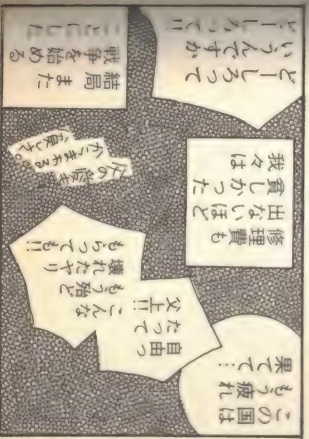 この国は
もう疲れ
果てて…
自由っ
たって
父上!!
こんな
もう殆ど
壊れたやり
もらっても!!
修理費も
出ないほど
貧しかった
我々は
どーしろって
いうんですか
どーしろって!!
結局また
戦争を始める
ことにした